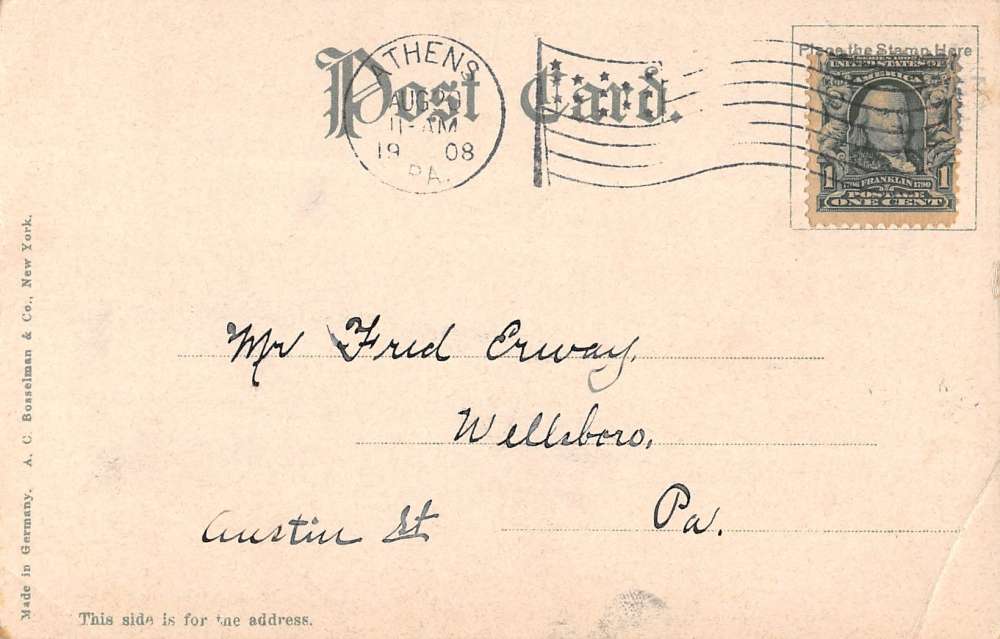 Post Card.
ATHENS
AUG 20
11-AM
19 08
PA.
Place the Stamp Here
UNITED STATES OF
AMERICA
1 1706 FRANKLIN 1790 1
POSTAGE
ONE CENT
Mr Fred Erway,
Wellsboro,
Austin St Pa.
Made in Germany. A. C. Bosselman & Co., New York.
This side is for the address.